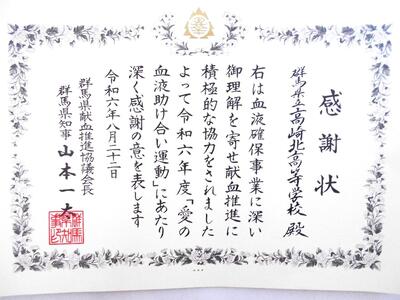 感謝状
群馬県立高崎北高等学校 殿
右は血液確保事業に深い
御理解を寄せ献血推進に
積極的な協力をされました
よって令和六年度「愛の
血液助け合い運動」にあたり
深く感謝の意を表します
令和六年八月二十二日
群馬県献血推進協議会長
群馬県知事 山本一太